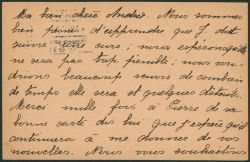 Ma bien chère André. Nous sommes
bien peinés d'apprendre que J. doit
suivre cure; nous espérons qu'elle
ne sera pas trop pénible; nous vou-
drions beaucoup savoir de combien
de temps elle sera et quelques détails.
Merci mille fois à Pierre de sa
bonne carte dis lui que j'espère qu'il
continuera à me donner de vos
nouvelles. Nous vous souhaitons